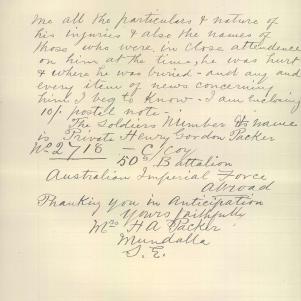 me all the particulars & nature of
his injuries & also the names of
those, who were, in close attendence
on him at the time, he was hurt
& where he was buried - and any and
every item of news concerning
him I beg to know - I am inclosing
10/- postell note -
The Soldiers Number & name
is Private Henry Gordon Packer
No 2718 - C/coy
50th Battalion
Australian Imperial Force
Abroad
Thanking you in Anticipation
Yours faithfully
Mrs H A Packer
Mundalla
S. E.